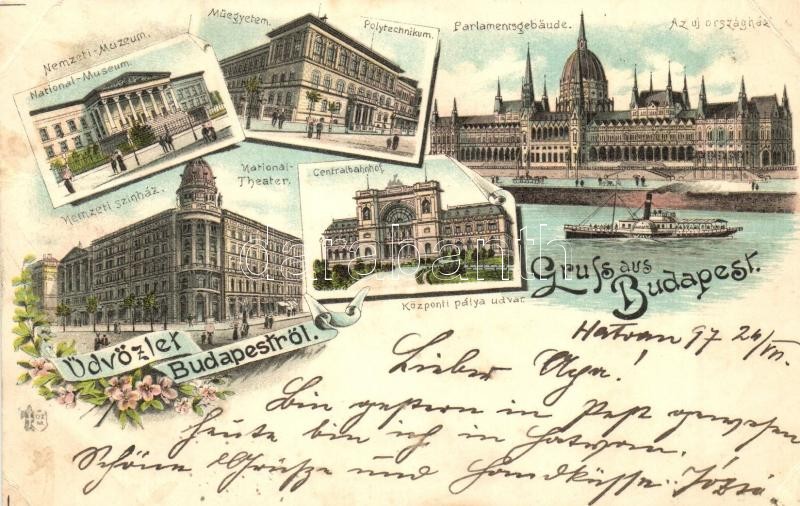 Nemzeti-Muzeum.
National-Museum.
Műegyetem.
Polytechnikum.
Parlamentsgebäude.
Az uj országház
Nemzeti szinház.
National-
Theater.
Centralbahnhof.
Központi pálya udvar.
Gruss aus
Budapest.
Üdvözlet
Budapestről.
darabanth
Hatvan 97 24/VII.
Lieber Olga!
Bin gestern in Pest gewesen
heute bin ich in Hatvan.
Schöne Grüsse und Handküsse